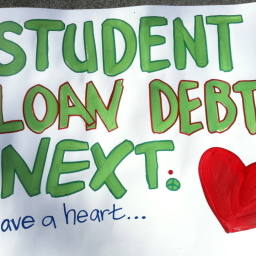 STUDENT
LOAN DEBT
NEXT.
ave a heart...